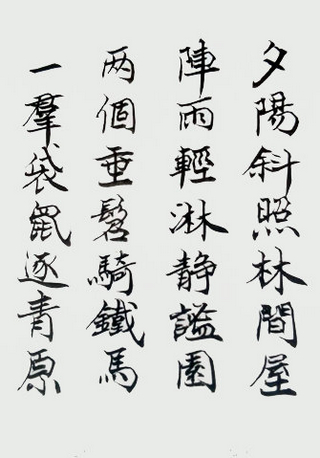 夕陽斜照林間屋
陣雨輕淋静謐園
两個垂髫騎鐵馬
一羣袋鼠逐青原